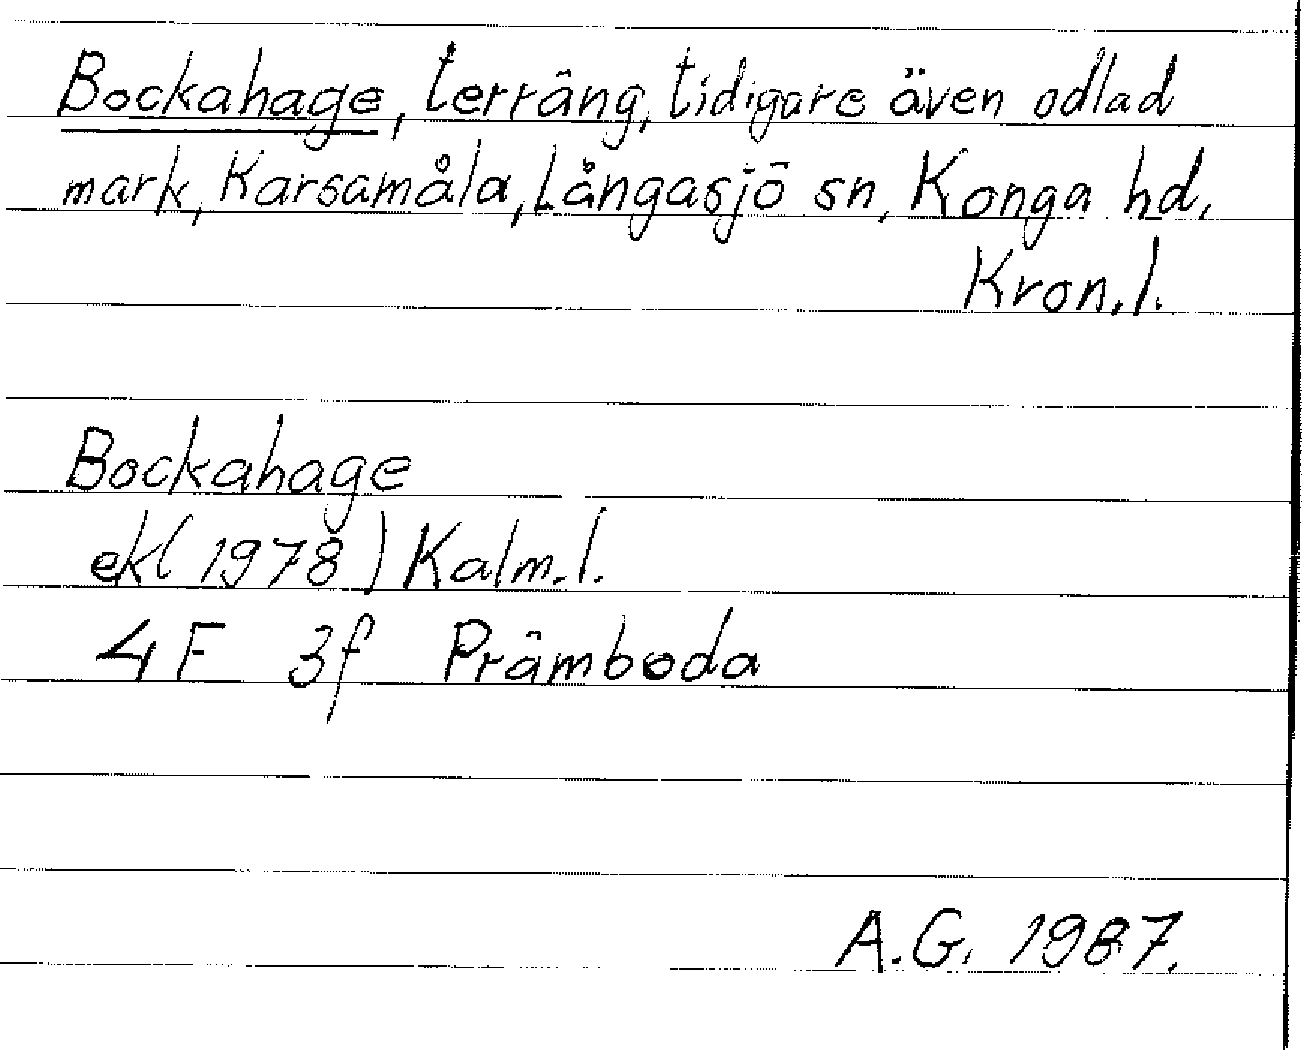 Bockahage, terräng, tidigare även odlad
mark, Karsamåla, Långasjö sn, Konga hd,
Kron.l.
Bockahage
ek (1978) Kalm.l.
4F 3f Prämboda
A.G. 1987.